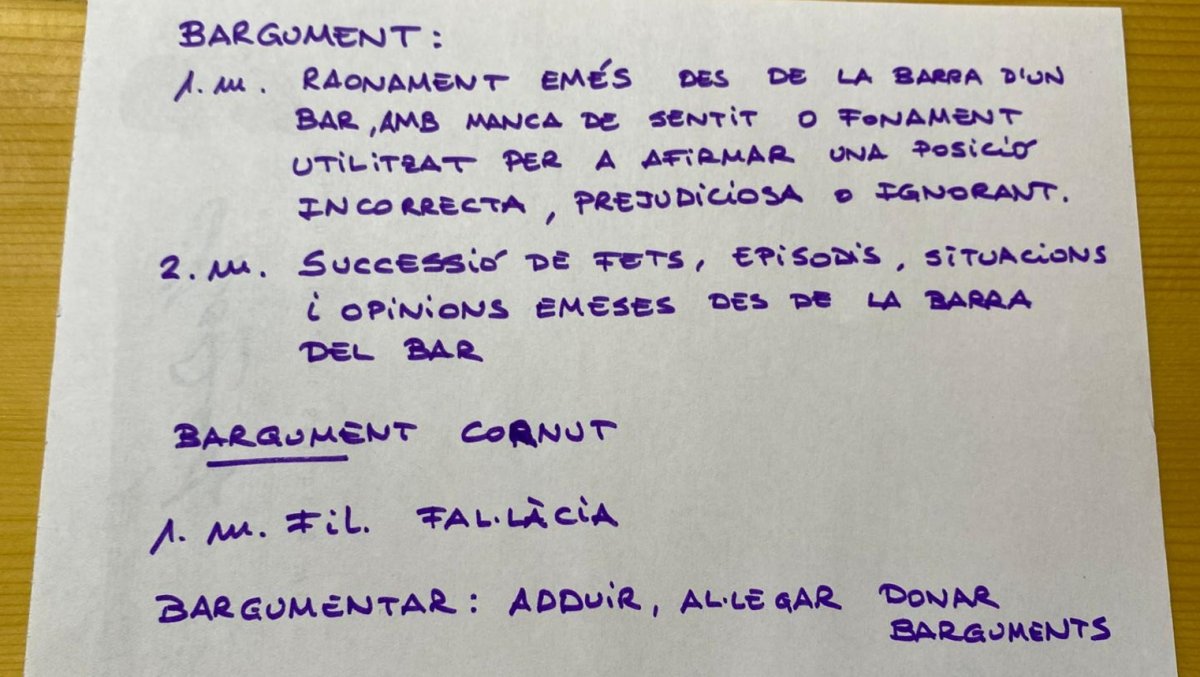 BARGUMENT:
1. m. RAONAMENT EMÉS DES DE LA BARRA D'UN
BAR, AMB MANCA DE SENTIT O FONAMENT
UTILITZAT PER A AFIRMAR UNA POSICIÓ
INCORRECTA, PREJUDICIOSA O IGNORANT.
2. m. SUCCESSIÓ DE FETS, EPISODIS, SITUACIONS
i OPINIONS EMESES DES DE LA BARRA
DEL BAR
BARGUMENT CORNUT
1. m. FiL. FAL·LÀCIA
BARGUMENTAR: ADDUIR, AL·LEGAR DONAR
BARGUMENTS